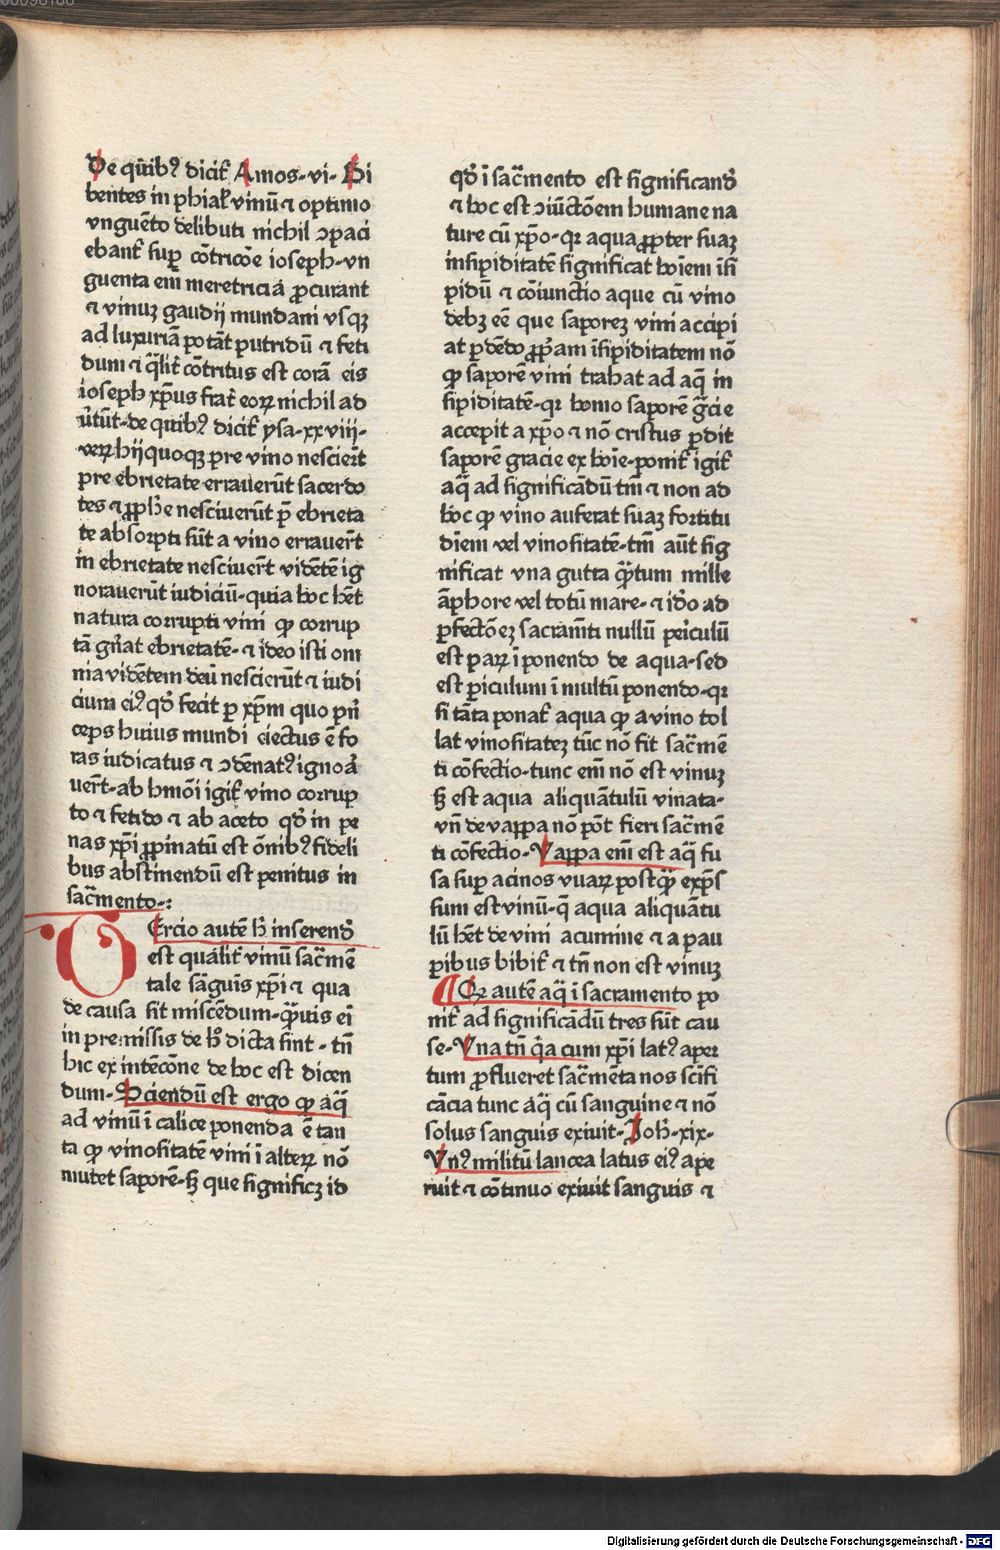 De quibꝰ dicit̃ Amos·vi·Bi
bentes in phial̃ vinũ ⁊ optimo
vnguẽto delibuti nichil ꝯpaci
ebant̃ suꝑ cõtricõe ioseph·vn
guenta eni᷉ meretriciã ꝓcurant
⁊ vinuꝫ gaudij mundani vsqꝫ
ad luxuriã potãt putridũ ⁊ feti
dum ⁊ q̃lit̃ cõtritus est corã eis
ioseph xp̃us frat̃ eoꝝ nichil ad
ũtũt·de quibꝰ dicit̃ ysa·xxviii·
veꝝ hij quoqꝫ pre vino nescier̃t
pre ebrietate errauerũt sacerdo
tes ⁊ ꝓph̃e nesciuerũt p̃ ebrieta
te absorpti sũt a vino errauer̃t
in ebrietate nesciuer̃t vidẽtẽ ig
norauerũt iudiciũ·quia hoc hẽt
natura corrupti vini ꝙ corrup
tã gñat ebrietatẽ·⁊ ideo isti om
nia vidẽtem deũ nescierũt ⁊ iudi
cium eiꝰ qđ fecit p xp̃m quo pñ
ceps huius mundi eiectus ẽ fo
ras iudicatus ⁊ ꝯdẽnatꝰ ignoã
uer̃t·ab hmõi igit̃ vino corrup
to ⁊ fetido ⁊ ab aceto qđ in pe
nas xp̃i ꝓpinatũ est õnibꝰ fideli
bus abstinendũ est penitus in
sac̃mento·:
TErcio autẽ h̃ inserend̃
est qualit̃ vinũ sac̃mẽ
tale sãguis xp̃i ⁊ qua
de causa sit miscẽdum·q̃uis ei᷉
in premissis de h̃ dicta sint·tñ
hic ex intẽcõne de hoc est dicen
dum·Sciendũ est ergo ꝙ aq̃
ad vinũ ĩ calice ponenda ẽ tan
ta ꝙ vinositatẽ vini ĩ alteꝝ nõ
mutet saporẽ·ꝫ que significꝫ id
qđ ĩ sac̃mento est significand̃
⁊ hoc est ꝯiũctõem humane na
ture cũ xp̃o·qꝛ aqua ꝓpter suaꝫ
insipiditatẽ significat hoĩem ĩsi
pidũ ⁊ cõiunctio aque cũ vino
debꝫ eẽ que saporeꝫ vini accipi
at ꝑdẽdo ꝓp̃am ĩsipiditatem nõ
ꝙ saporẽ vini trahat ad aq̃ in
sipiditatẽ·qꝛ homo saporẽ g̃cie
accepit a xp̃o ⁊ nõ cristus ꝑdit
saporẽ gracie ex hoĩe·ponit̃ igit̃
aq̃ ad significãdũ tm̃ ⁊ non ad
hoc ꝙ vino auferat suaꝫ fortitu
diẽm vel vinositatẽ·tm̃ aũt sig
nificat vna gutta q̃tum mille
ãphore vel totũ mare·⁊ iđo ad
ꝑfectõeꝫ sacram̃ti nullũ periculũ
est paꝝ ĩ ponendo de aqua·sed
est periculum ĩ multũ ponendo·qꝛ
si tãta ponat̃ aqua ꝙ a vino tol
lat vinositateꝫ tũc nõ fit sac̃mẽ
ti cõfectio·tunc em̃ nõ est vinuꝫ
ꝫ est aqua aliquãtulũ vinata·
vñ de vappa nõ põt fieri sac̃mẽ
ti cõfectio·Vappa em̃ est aq̃ fu
sa suꝑ acinos vuaꝝ postq̃ exp̃s
sum est vinũ·q̃ aqua aliquãtu
lũ hẽt de vini acumine ⁊ a pau
ꝑibus bibit̃ ⁊ tñ non est vinuꝫ
¶Qꝛ autẽ aq̃ ĩ sacramento po
nit̃ ad significãdũ tres sũt cau
se·Vna tñ q̃a cum xp̃i latꝰ aper
tum ꝓflueret sac̃mẽta nos sc̃ifi
cãcia tunc aq̃ cũ sanguine ⁊ nõ
solus sanguis exiuit·Joh̃·xix·
Vnꝰ militũ lancea latus eiꝰ ape
ruit ⁊ cõtinuo exiuit sanguis ⁊
Digitalisierung gefördert durch die Deutsche Forschungsgemeinschaft - DFG